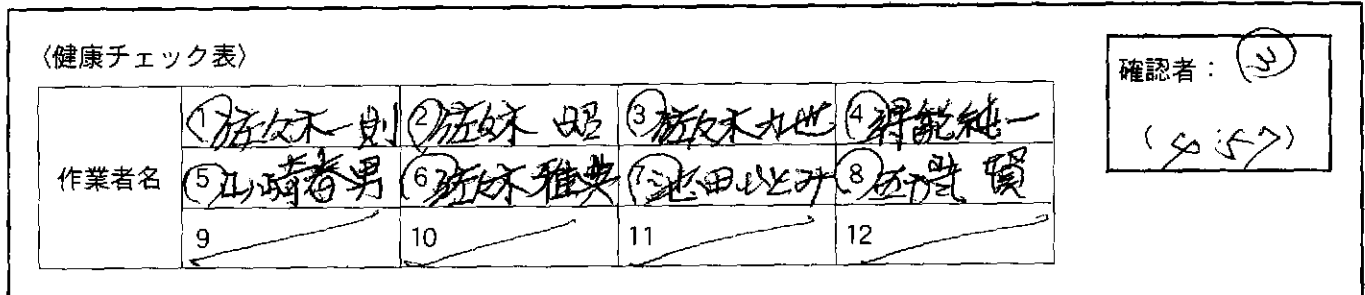 〈健康チェック表〉
確認者：
作業者名
①佐々木一則 ②佐々木 昭 ③佐々木九世 ④得能純一
⑤山崎春男 ⑥佐々木雅典 ⑦池田ひとみ ⑧ 賢
9 10 11 12